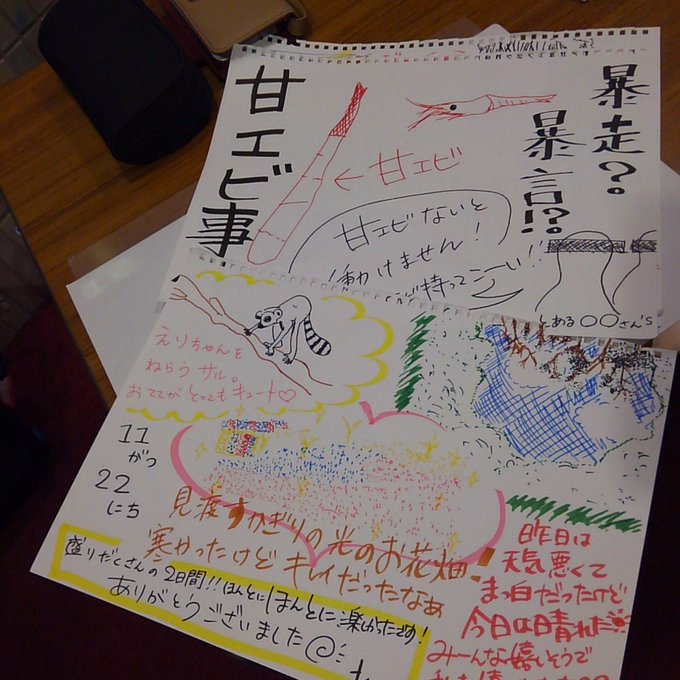 甘エビ事
暴走?。
暴言!?。
← 甘エビ
甘エビないと
働けません!
持ってこーい!!
とある〇〇さん'S
えりちゃんを
ねらうサル。
おててがとってもキュート♡
11
がつ
22
にち
見渡すかぎりの光のお花畑!
寒かったけどキレイだったなぁ
盛りだくさんの2日間!!ほんとにほんとに楽しかったです!
ありがとうございました
昨日は
天気悪くて
まっ白だったけど
今日は晴れた
みーんな嬉しそうで